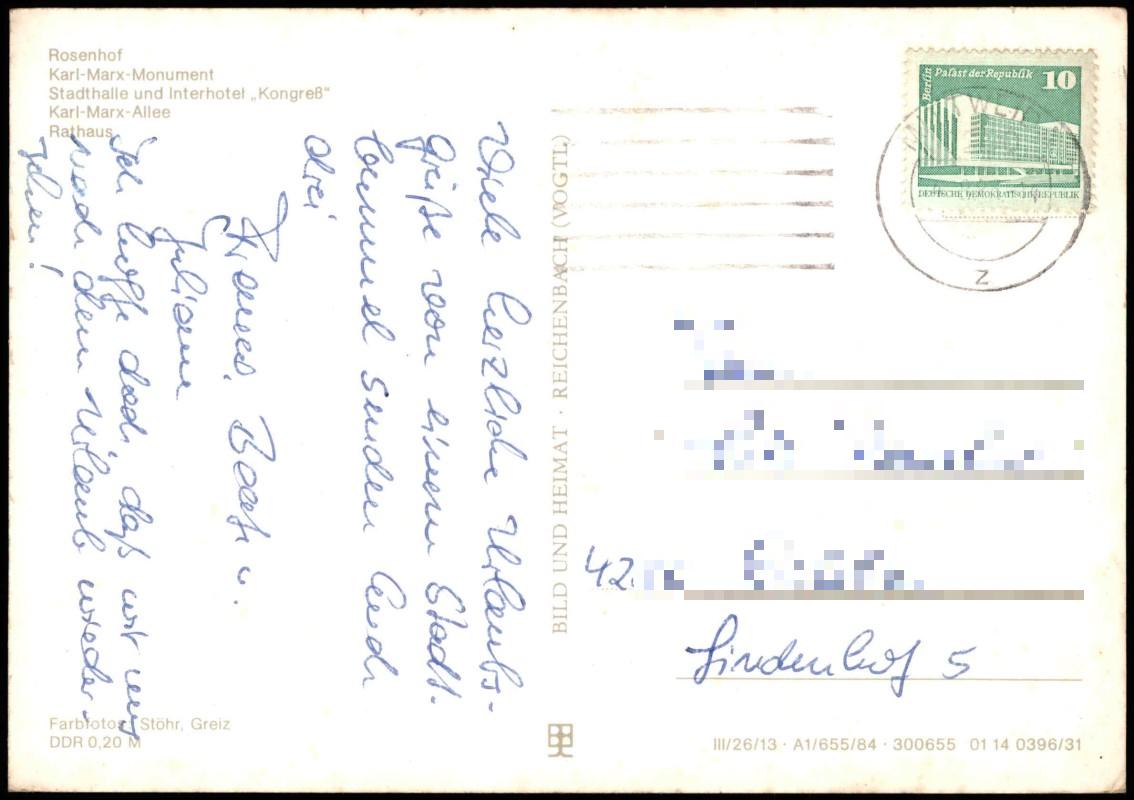 Rosenhof
Karl-Marx-Monument
Stadthalle und Interhotel „Kongreß“
Karl-Marx-Allee
Rathaus
Viele herzliche Urlaubs-
grüße von einem Stadt-
bummel senden Euch
drei
Beate u.
Juliane
Ich hoffe doch, daß wir uns
nach dem Urlaub wieder-
sehen!
Farbfotos: Stöhr, Greiz
DDR 0,20 M
BILD UND HEIMAT · REICHENBACH (VOGTL)
Berlin
Palast der Republik
10
DEUTSCHE DEMOKRATISCHE REPUBLIK
Z
42
Lindenhof 5
III/26/13 · A1/655/84 · 300655 01 14 0396/31